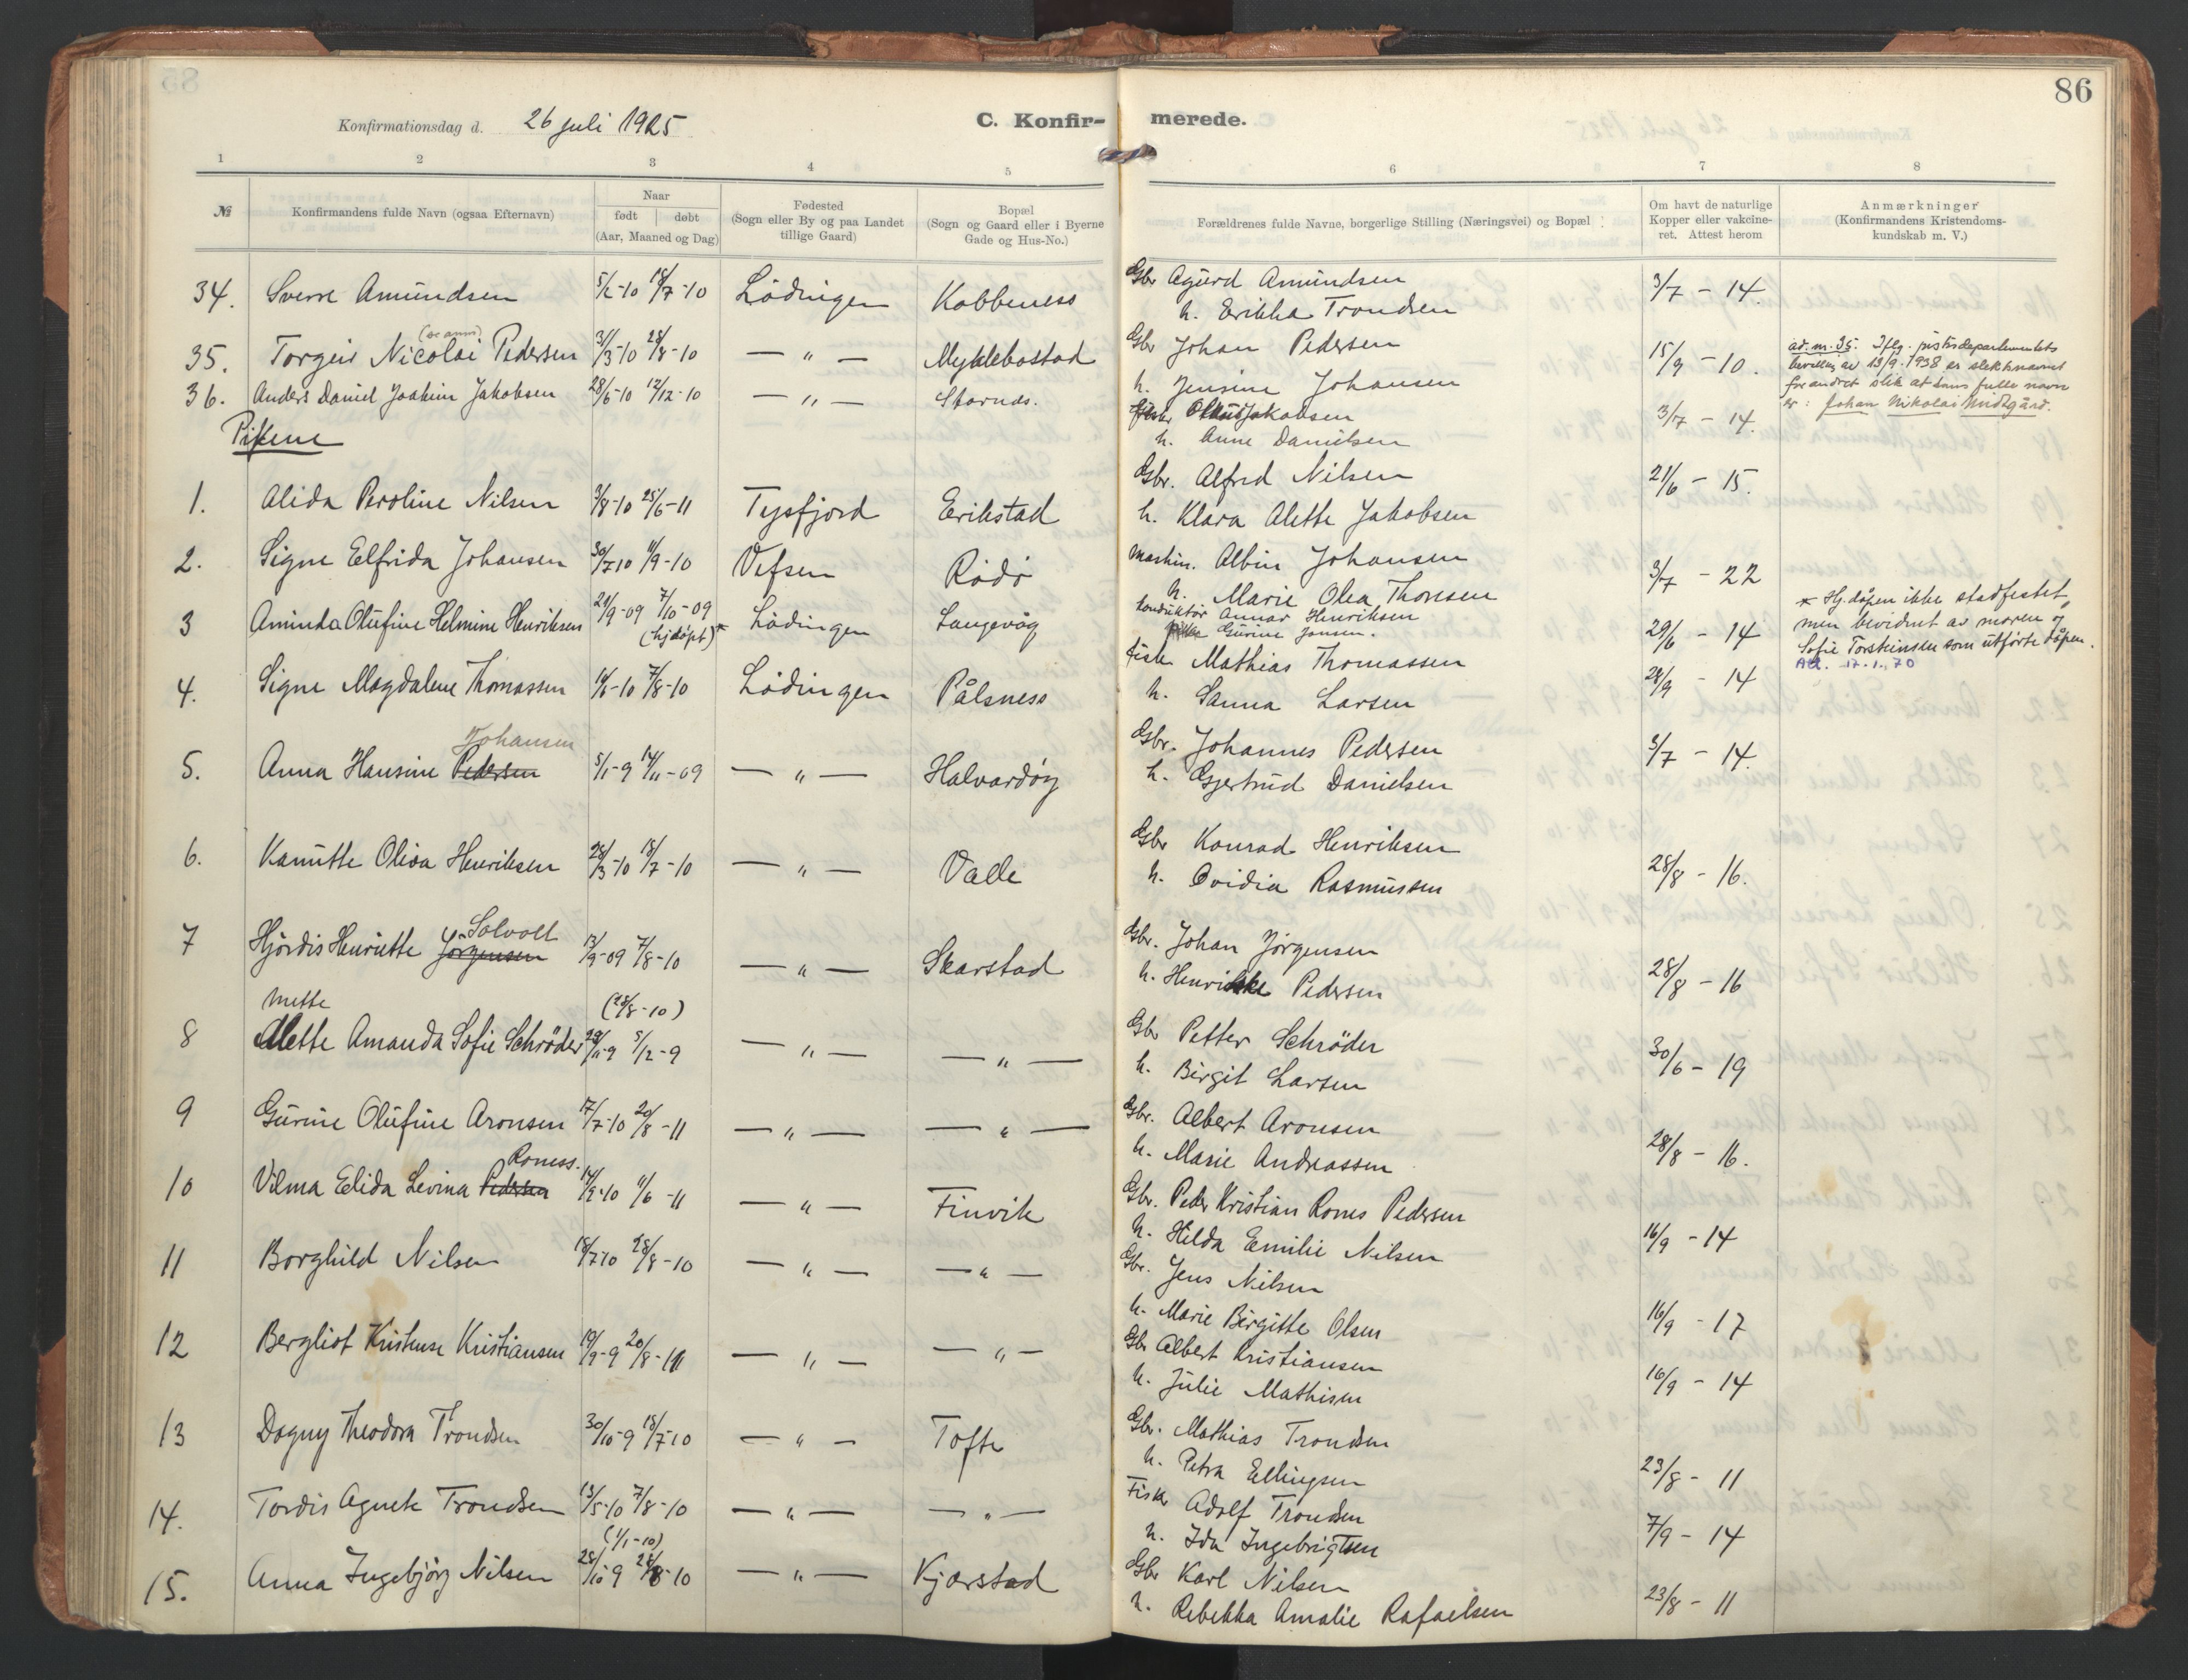 86
Konfirmationsdag d. 26 juli 1925
C. Konfirmerede.
1 2 3 4 5 6 7 8
№ Konfirmandens fulde Navn (ogsaa Efternavn)
Naar
født døbt
(Aar, Maaned og Dag)
Fødested
(Sogn eller By og paa Landet
tillige Gaard)
Bopæl
(Sogn og Gaard eller i Byerne
Gade og Hus-No.)
Forældrenes fulde Navne, borgerlige Stilling (Næringsvei) og Bopæl
Om havt de naturlige
Kopper eller vakcine-
ret. Attest herom
Anmærkninger
(Konfirmandens Kristendoms-
kundskab m. V.)
34. Sverre Amundsen 5/2-10 18/7-10 Lödingen Kobbeness Gbr Agurd Amundsen 3/7 - 14.
h. Erikka Trondsen
35. Torgeir Nicolai Pedersen 31/3-10 28/8-10 — " — Myklebostad Gbr Johan Pedersen 15/9 - 10.
h. Jensine Johansen
ad. nr. 35. Iflg. justisdepartementets
bevilling av 13/9. 1938 er slektsnavnet
forandret slik at hans fulle navn
er: Johan Nikolai Midtgård.
36. Anders Daniel Joakim Jakobsen 28/6-10 12/12-10 — " — Stornes. Jakobsen 3/7 - 14.
h. Anne Danielsen
Pikene
1. Alida Peroline Nilsen 3/8-10 25/6-11 Tysfjord Erikstad Gbr. Alfred Nilsen 21/6 - 15.
h. Klara Alette Jakobsen
2. Signe Elfrida Johansen 30/7 10 11/9-10 Vefsen Rödö Maskin. Albin Johansen 3/7 - 22
h. Marie Olea Thoresen
3 Aminda Olufine Helmine Henriksen 21/9-09 7/10-09 Lödingen Langevåg konduktör Annar Henriksen 29/6 - 14
(hjdöpt)* pike Gurine Jansen.
* Hj.dåpen ikke stadfestet,
men bevidnet av moren og
Sofie Torsteinsen som utførte dåpen.
17.1.70
4. Signe Magdalene Thomassen 7/8-10 Lödingen Pålsness fisk. Mathias Thomassen 28/9 - 14
h. Sanna Larsen
Johansen
5. Anna Hansine Pedersen 5/1-9 14/11-09 — " — Halvardöy Gbr. Johannes Pedersen 3/7 - 14.
h. Gjertrud Danielsen
6. Kanutte Oliva Henriksen 28/3-10 18/7-10 — " — Valle Gbr Konrad Henriksen 28/8 - 16.
h. Ovidia Rasmussen
Solvoll
7 Hjördis Henriette Jörgensen 13/9-09 7/8-10 — " — Skarstad Gbr. Johan Jörgensen 28/8 - 16
h. Henrikke Pedersen
Mette (28/8-10)
8 Alette Amanda Sofie Schröder 29/11-9 5/12-9 — " — — " — Gbr Petter Schröder 30/6 - 19
h. Birgit Larsen
9 Gurine Olufine Aronsen 17/7-10 20/8-11 — " — — " — Gbr. Albert Aronsen 28/8 - 16.
h. Marie Andreassen
Roness.
10 Vilma Elida Levina Pedersen 14/9-10 11/6-11 — " — Finvik Gbr. Peder Kristian Rones Pedersen 16/9 - 14
h. Hilda Emilie Nilsen
11 Borghild Nilsen 18/7 10 28/8-10 — " — — " — Gbr. Jens Nilsen 16/9 - 17
h. Marie Birgitte Olsen
12 Bergliot Kristense Kristiansen 19/9-9 20/8-11 — " — — " — Gbr Albert Kristiansen 16/9 - 14
h. Julie Mathisen
13 Dagny Theodora Trondsen 30/10-9 18/7-10 — " — Tofte Gbr. Mathias Trondsen 23/8 - 11
h. Petra Ellingsen
14. Tordis Agnete Trondsen 13/5-10 7/8-10 — " — — " — Fisker Adolf Trondsen 7/9 - 14
h. Ida Ingebrigtsen
(1/1-10)
15. Anna Ingebjörg Nilsen 28/10 9 28/8-10 — " — Kjærstad Gbr Karl Nilsen 23/8 - 11
h. Rebekka Amalie Rafaelsen